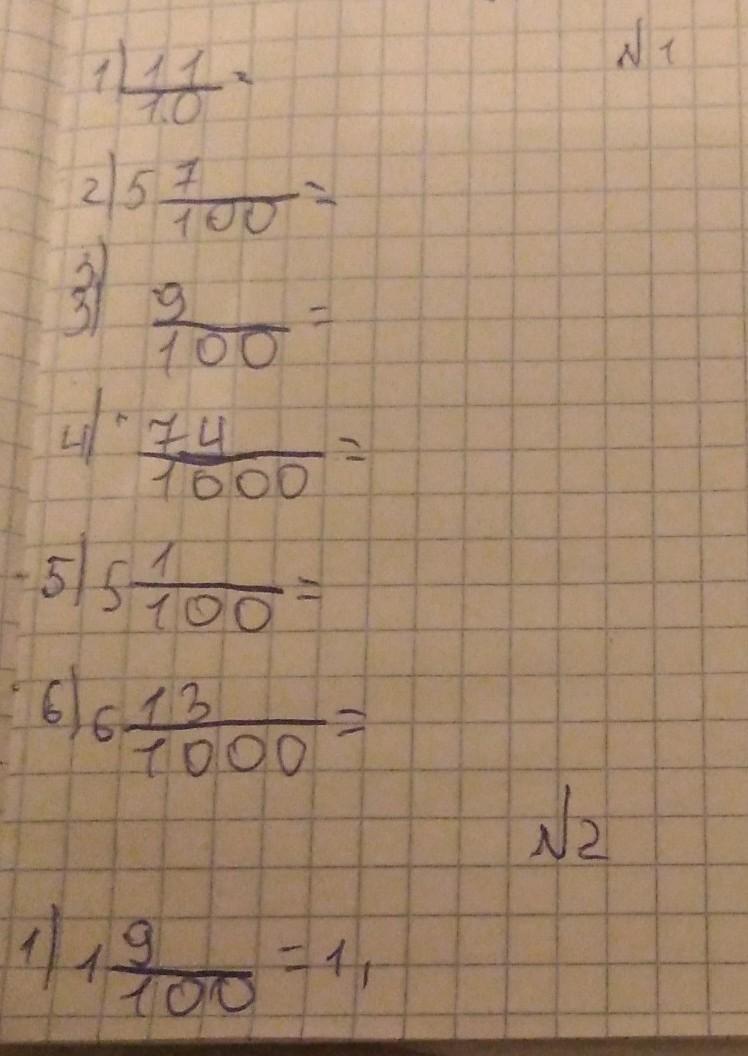 №1
1) 11/10 =
2) 5 7/100 =
3)
3) 9/100 =
4) 74/1000 =
5) 5 1/100 =
6) 6 13/1000 =
№2
1) 1 9/100 = 1,